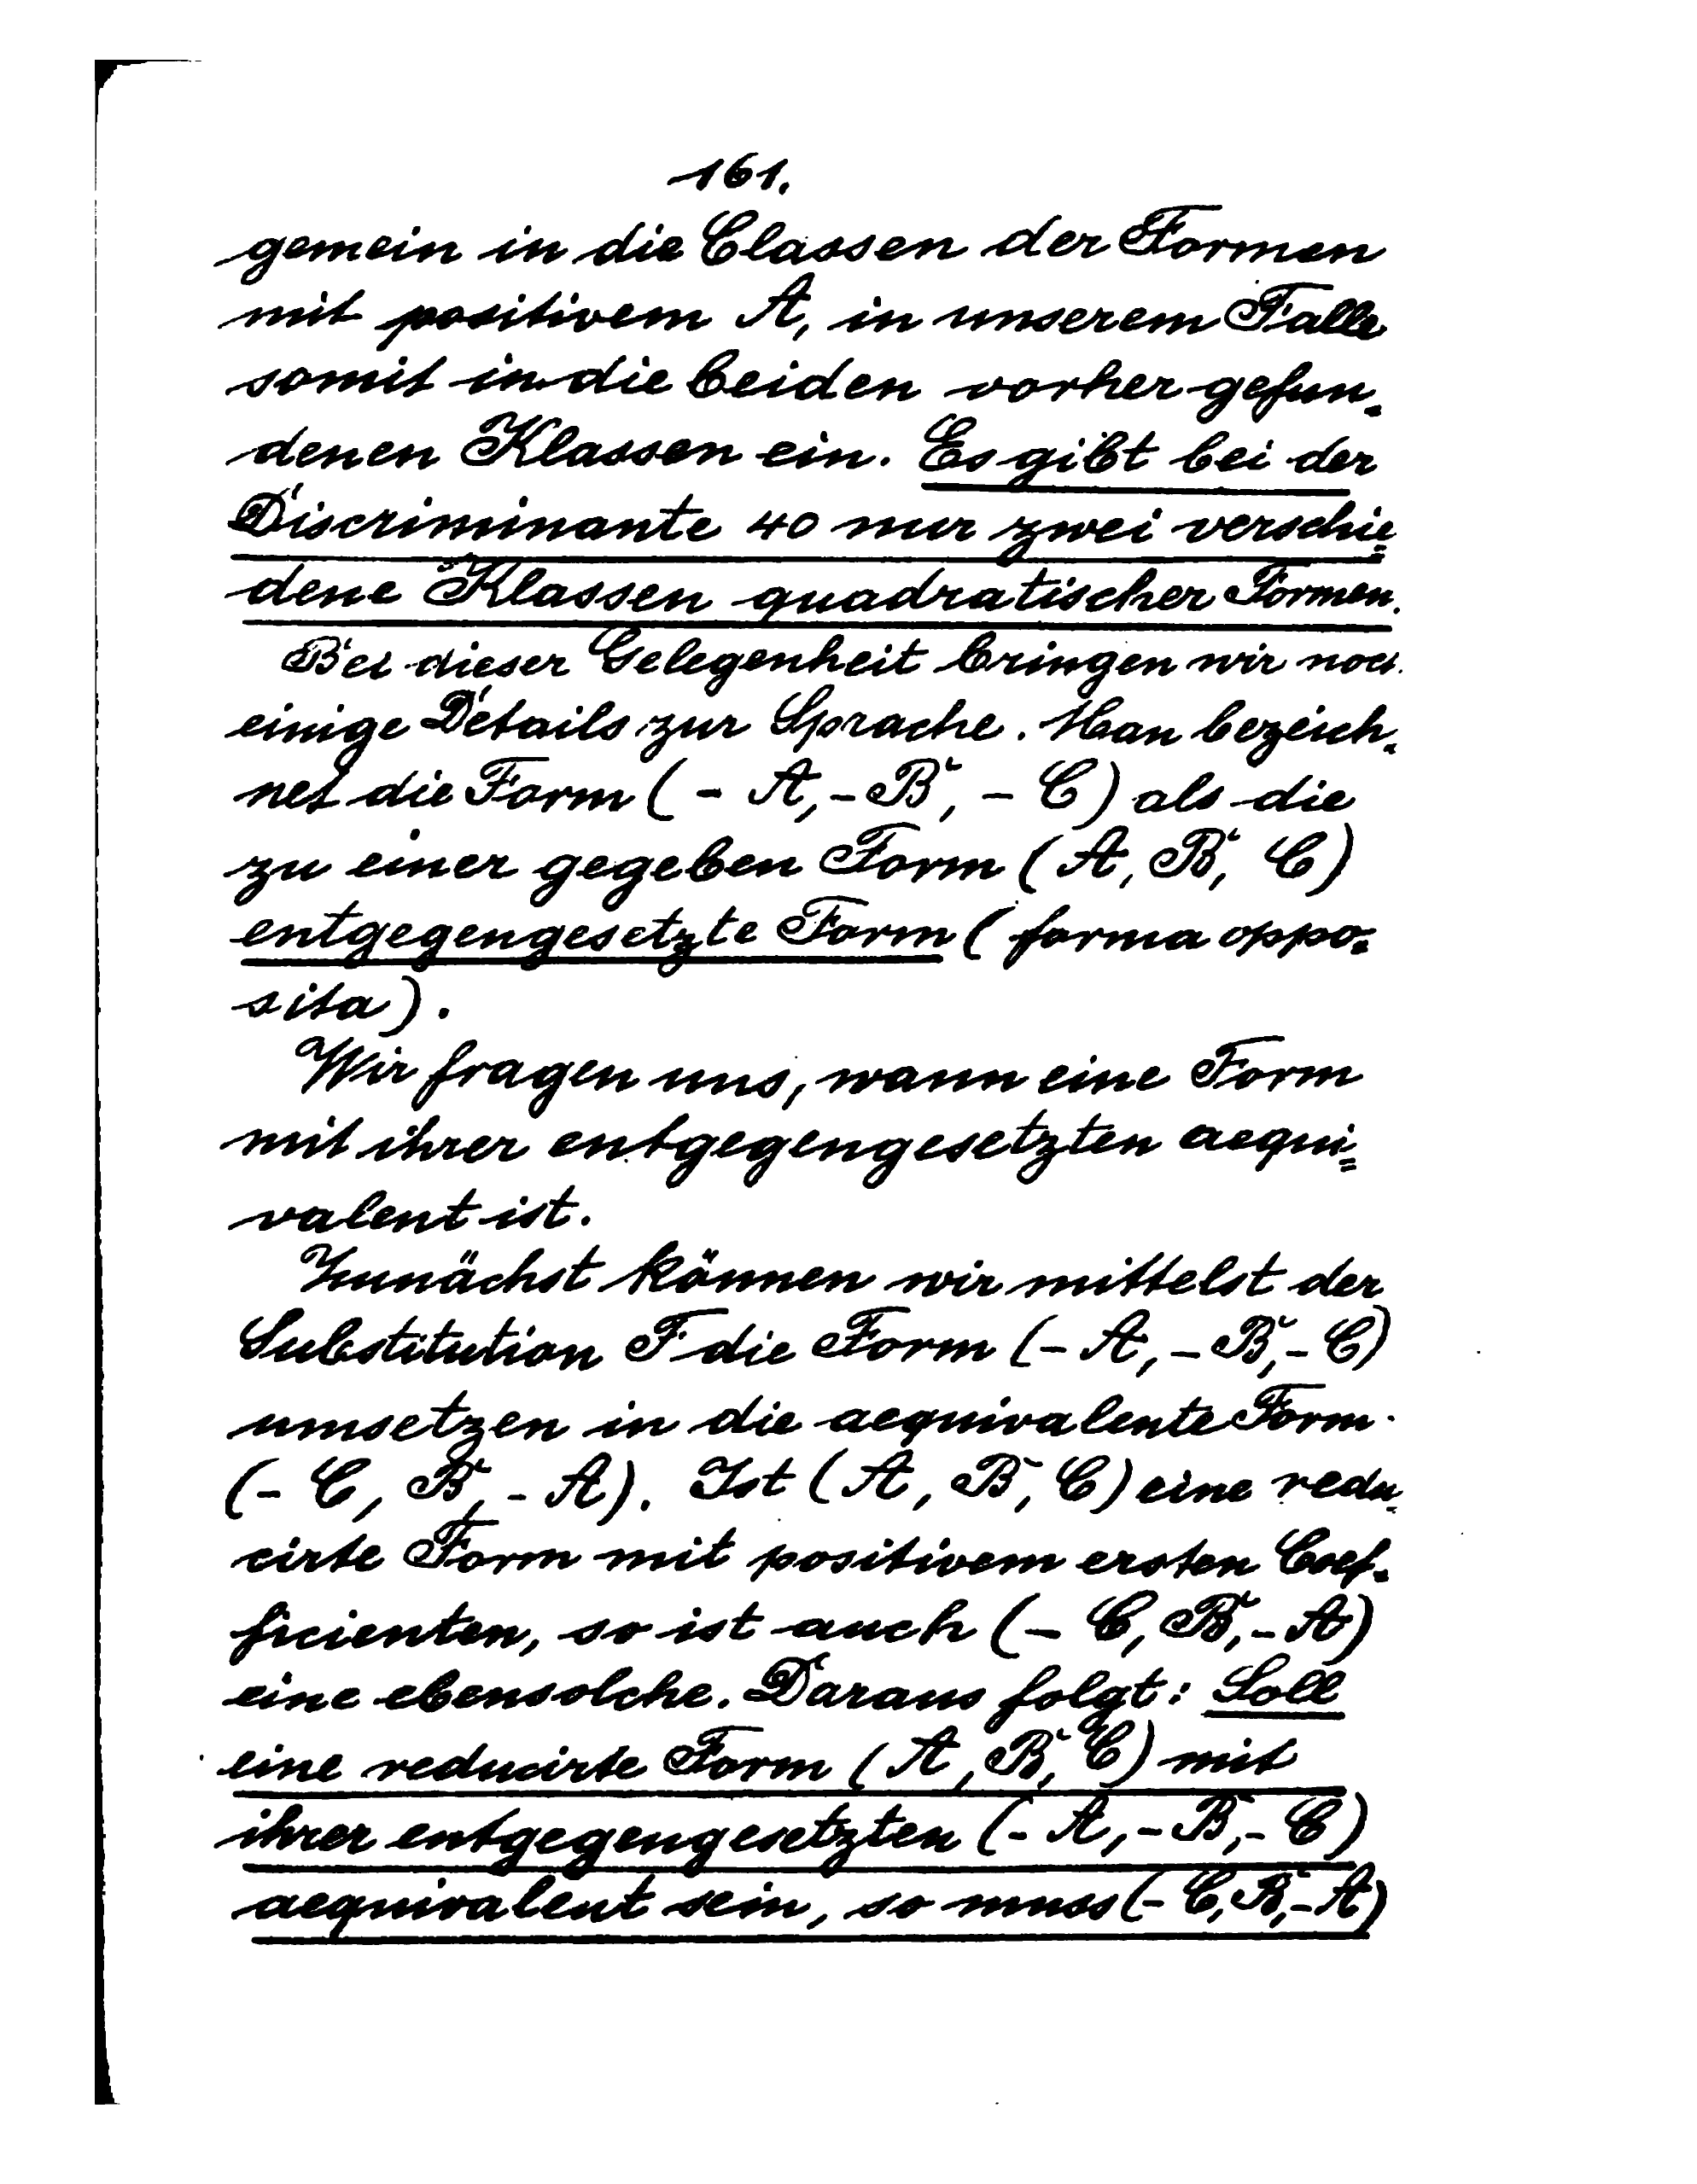 161.
gemein in die Classen der Formen
mit positivem A, in unserem Falle
somit in die beiden vorher gefun-
denen Klassen ein. Es gibt bei der
Discriminante 40 nur zwei verschie=
dene Klassen quadratischer Formen.
Bei dieser Gelegenheit bringen wir noch
einige Details zur Sprache. Man bezeich-
net die Form (- A, - B, - C) als die
zu einer gegeben Form (A, B, C)
entgegengesetzte Form (forma oppo=
sita).
Wir fragen uns, wann eine Form
mit ihrer entgegengesetzten aequi=
valent ist.
Zunächst können wir mittelst der
Substitution F die Form (- A, - B, - C)
umsetzen in die aequivalente Form
(- C, B, - A). Ist (A, B, C) eine redu-
cirte Form mit positivem ersten Coef-
ficienten, so ist auch (- C, B, - A)
eine ebensolche. Daraus folgt: Soll
eine reducirte Form (A, B, C) mit
ihrer entgegengesetzten (- A, - B, - C)
aequivalent sein, so muss (- C, B, - A)